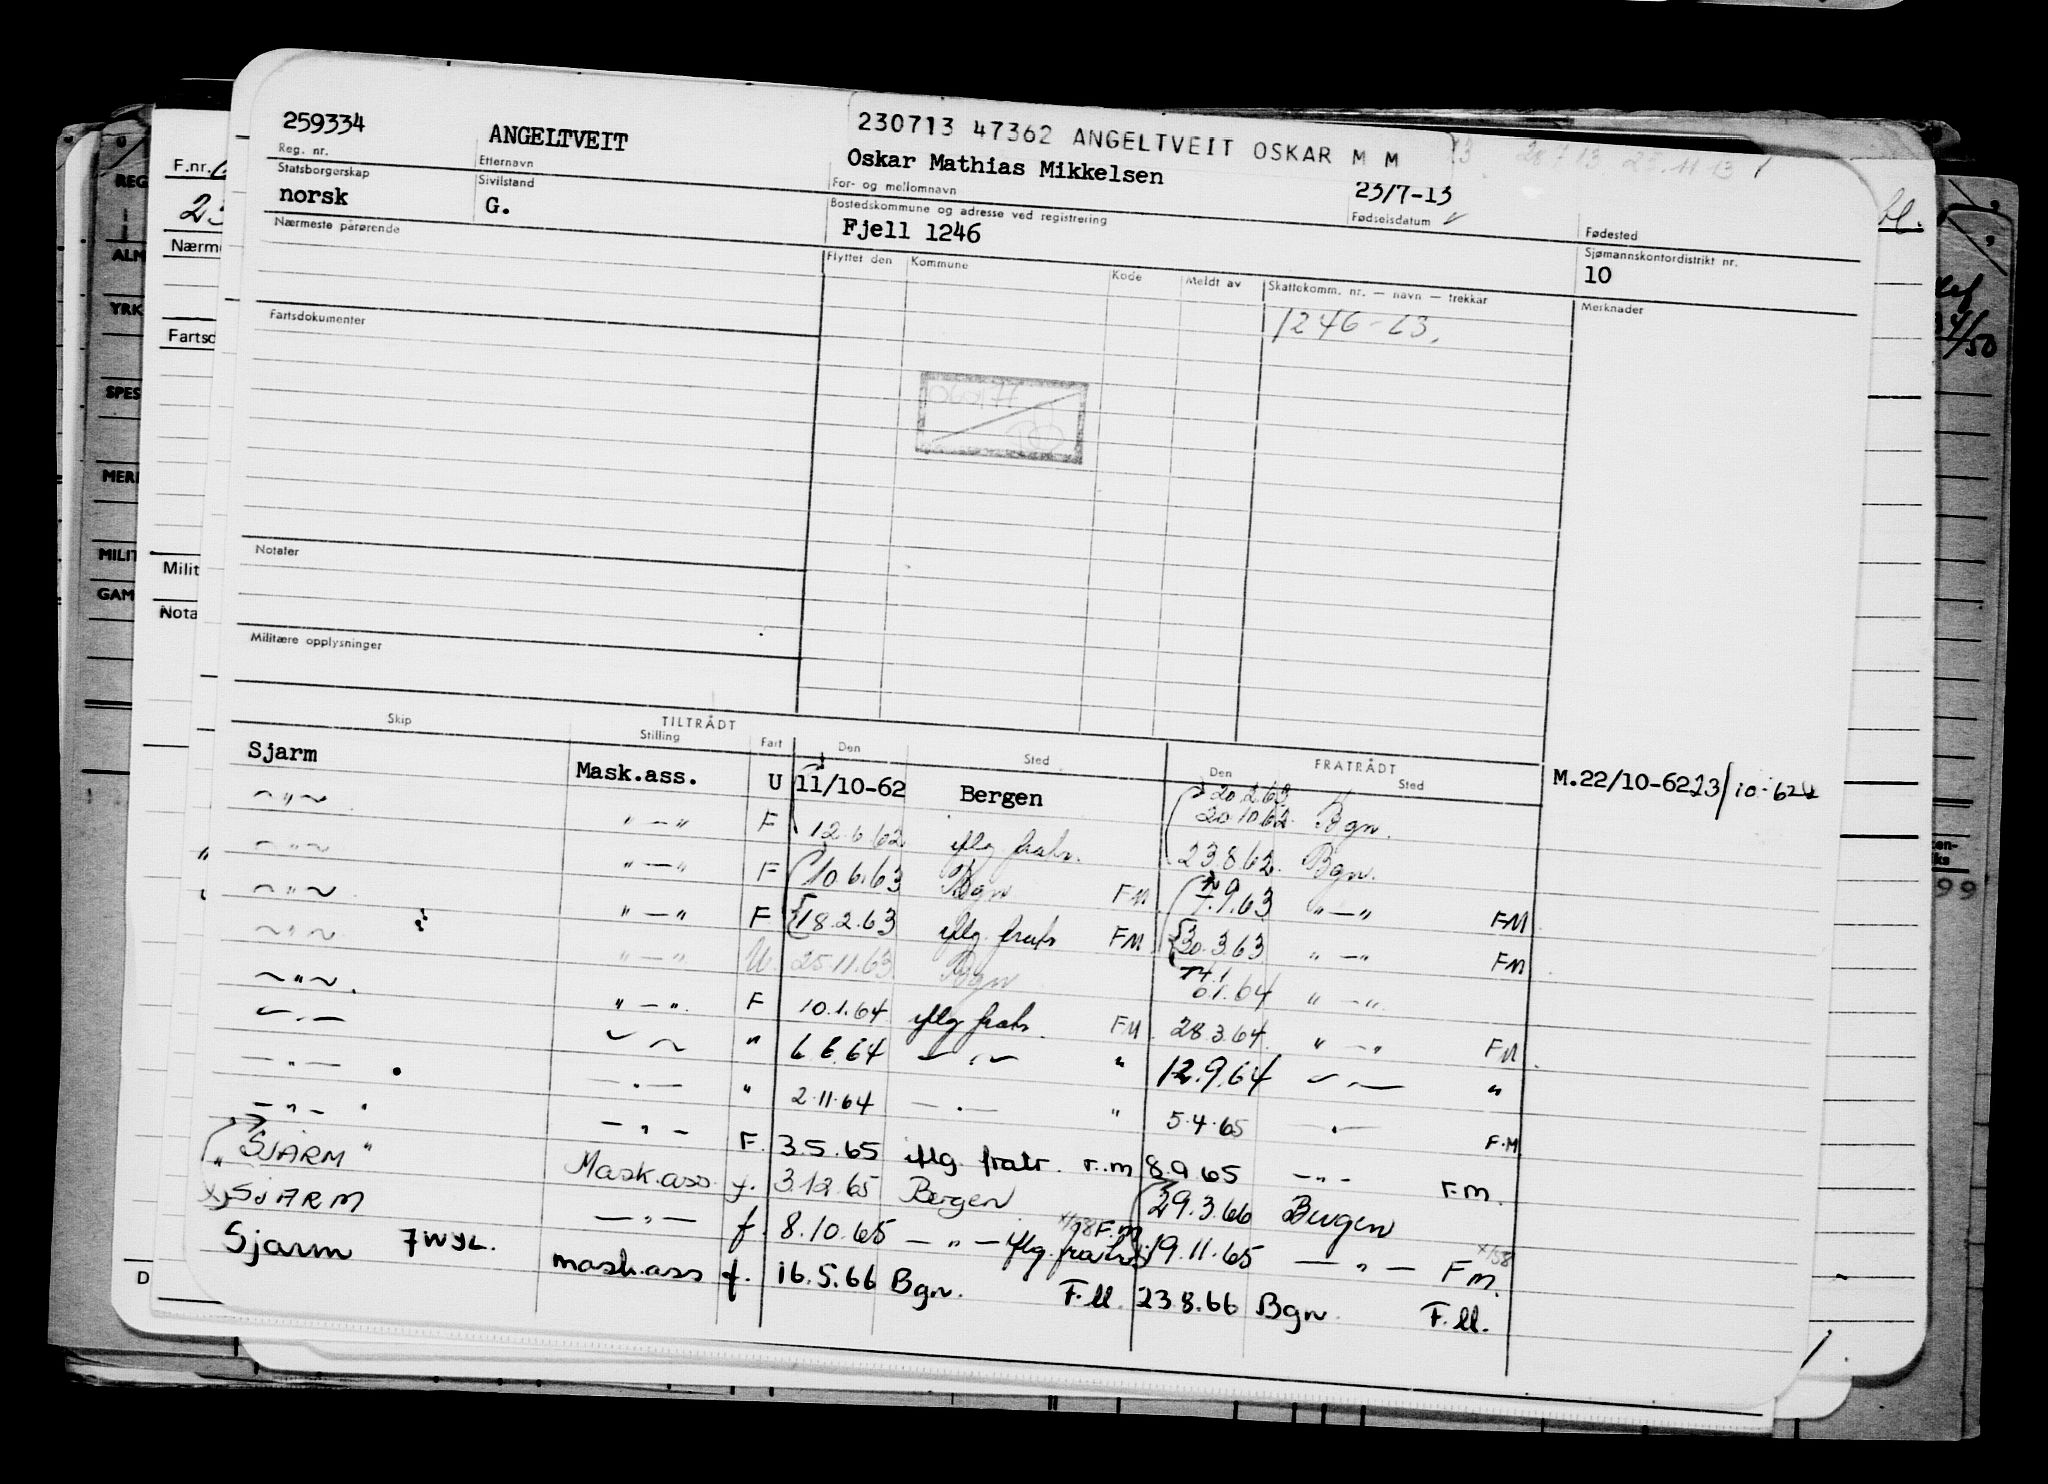 259334 ANGELTVEIT 230713 47362 ANGELTVEIT OSKAR M M
Reg. nr. Etternavn Oskar Mathias Mikkelsen 23/7-13
Statsborgerskap Sivilstand For- og mellomnavn Fødselsdatum Fødested
norsk G. Bostedskommune og adresse ved registrering Sjømannskontordistrikt nr.
Nærmeste pårørende Fjell 1246 10
Flyttet den Kommune Kode Meldt av Skattekomm. nr. — navn — trekkår Merknader
Fartsdokumenter 1246-63.
Notater
Militære opplysninger
TILTRÅDT FRATRÅDT
Skip Stilling Fart Den Sted Den Sted
Sjarm Mask.ass. U 11/10-62 Bergen 20.2.63 M.22/10-62 23/10-62
~"~ "—" F 12.6.62 iflg. fratr. 20.10.62 Bgn.
23.8.62 Bgn.
~"~ "—" F 10.6.63 Bgn FM 7.9.63 "—" FM
~"~ "—" F 18.2.63 iflg. fratr FM 30.3.63 "—" FM
~"~ "—" U 25.11.63 Bgn 6.1.64 "—"
~"~. "—" F 10.1.64 iflg fratr. FM 28.3.64 "—" FM
6.6.64 " 12.9.64 "
—"— " 2.11.64 " 5.4.65 F.M
—"— —"— F. 3.5.65 iflg. fratr. F.m 8.9.65 —"— F.m.
"SJARM" Mask.ass. f. 3.12.65 Bergen 29.3.66 Bergen
SJARM —"— f. 8.10.65 —"— iflg. fratr. F.m. 19.11.65 —"— Fm.
Sjarm mask.ass f. 16.5.66 Bgn. F.ll. 23.8.66 Bgn. F.ll.
F.nr.
REG
Nærm
ALM
YRK
Fartsd
SPES
MERK
MILIT
Milit
GAM
Nota
D
99